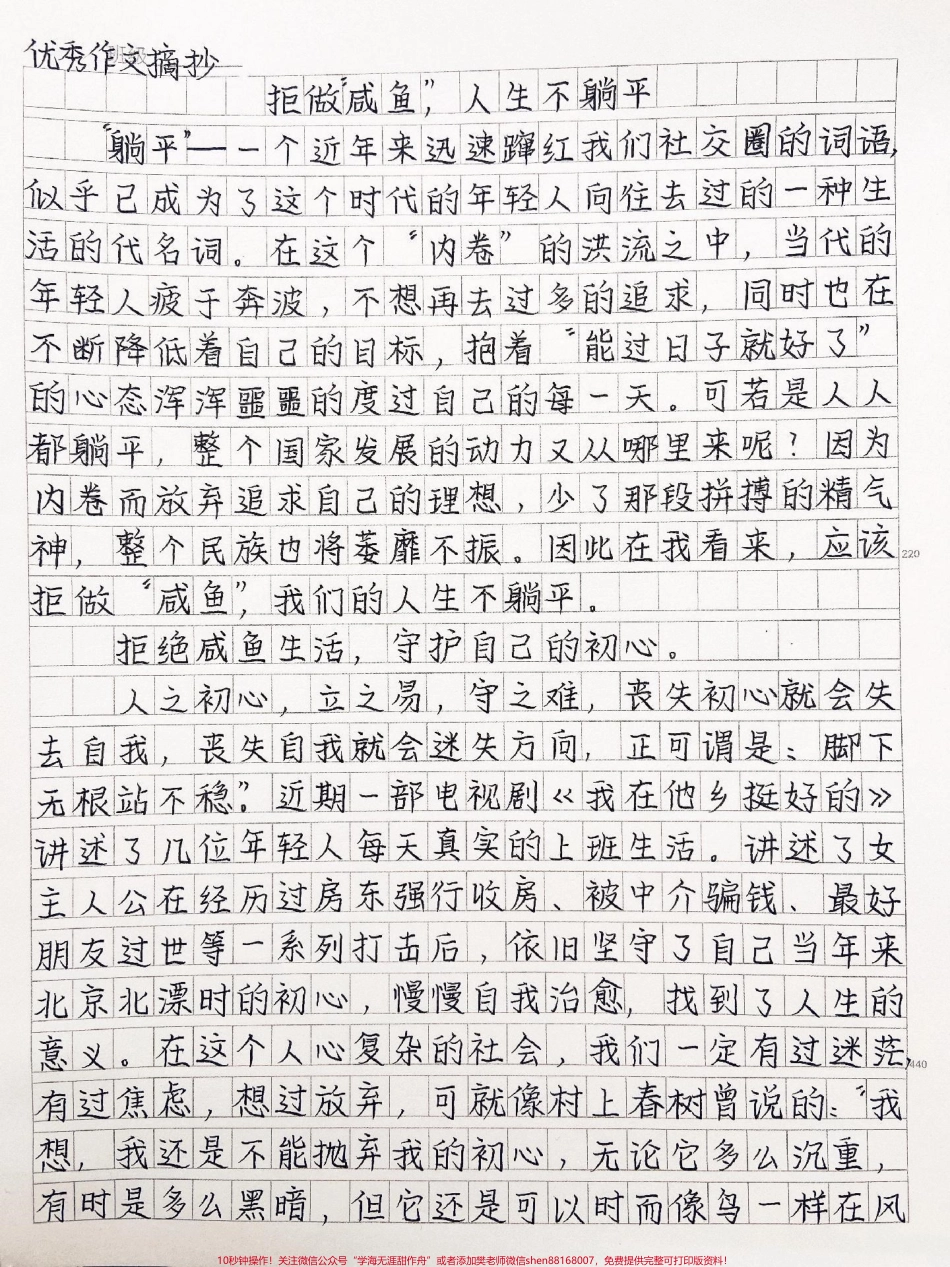 优秀作文摘抄
拒做“咸鱼”，人生不躺平
“躺平”——一个近年来迅速蹿红我们社交圈的词语，
似乎已成为了这个时代的年轻人向往去过的一种生
活的代名词。在这个“内卷”的洪流之中，当代的
年轻人疲于奔波，不想再去过多的追求，同时也在
不断降低着自己的目标，抱着“能过日子就好了”
的心态浑浑噩噩的度过自己的每一天。可若是人人
都躺平，整个国家发展的动力又从哪里来呢？因为
内卷而放弃追求自己的理想，少了那段拼搏的精气
神，整个民族也将萎靡不振。因此在我看来，应该
220
拒做“咸鱼”，我们的人生不躺平。
拒绝咸鱼生活，守护自己的初心。
人之初心，立之易，守之难，丧失初心就会失
去自我，丧失自我就会迷失方向，正可谓是：脚下
无根站不稳”。近期一部电视剧《我在他乡挺好的》
讲述了几位年轻人每天真实的上班生活。讲述了女
主人公在经历过房东强行收房、被中介骗钱、最好
朋友过世等一系列打击后，依旧坚守了自己当年来
北京北漂时的初心，慢慢自我治愈，找到了人生的
意义。在这个人心复杂的社会，我们一定有过迷茫，
440
有过焦虑，想过放弃，可就像村上春树曾说的：“我
想，我还是不能抛弃我的初心，无论它多么沉重，
有时是多么黑暗，但它还是可以时而像鸟一样在风
10秒钟操作！关注微信公众号“学海无涯甜作舟”或者添加樊老师微信shen88168007，免费提供完整可打印版资料！